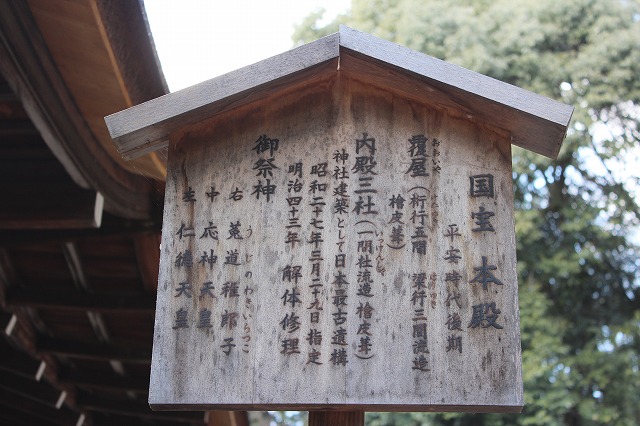 国宝 本殿
平安時代後期
覆屋（桁行五間 梁行三間流造
檜皮葺）
内殿三社（一間社流造 檜皮葺）
神社建築として日本最古遺構
昭和二十七年三月二十九日指定
明治四十三年 解体修理
御祭神
右 菟道稚郎子
うじのわきいらつこ
中 応神天皇
左 仁徳天皇